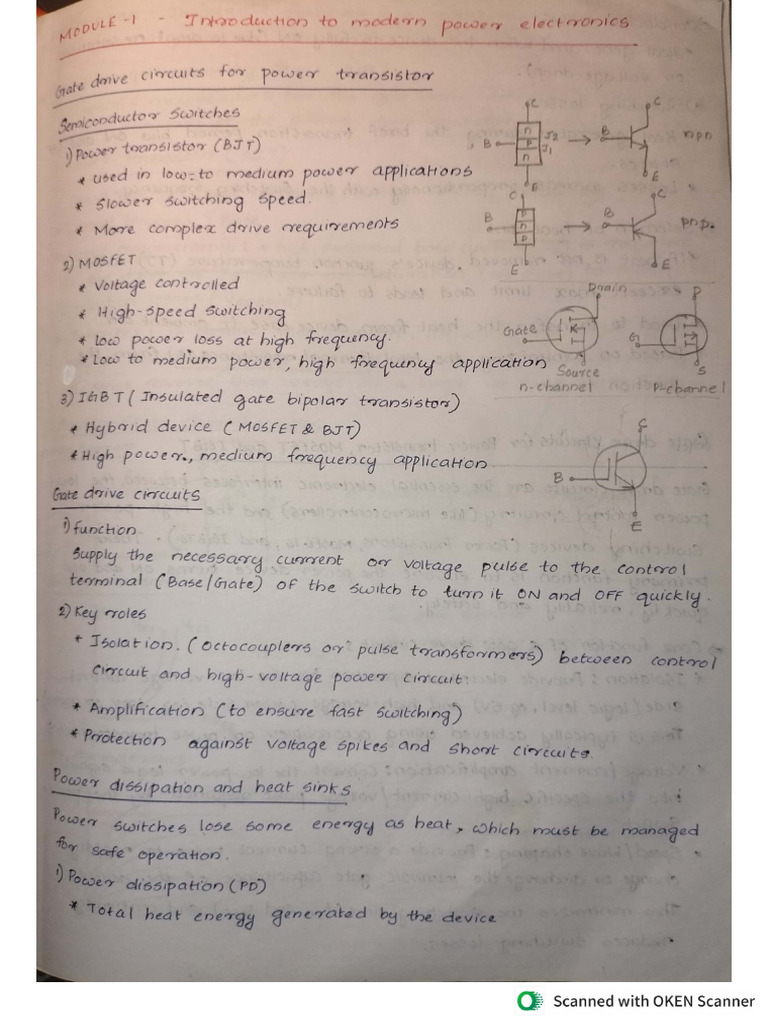 MODULE-1 - Introduction to modern power electronics
Gate drive circuits for power transistor
Semiconductor Switches
1) Power transistor (BJT)
* used in low-to medium power applications
* Slower switching speed.
* More complex drive requirements
C
n
P
n
J2
J1
B
E
C
B
E
npn
C
P
n
P
B
E
C
B
E
pnp.
2) MOSFET
* Voltage controlled
* High-speed switching
* low power loss at high frequency.
* Low to medium power, high frequency application
Drain
Gate
Source
n-channel
D
G
S
P-channel
3) IGBT (Insulated gate bipolar transistor)
* Hybrid device (MOSFET & BJT)
* High power, medium frequency application
C
B
E
Gate drive circuits
1) function
Supply the necessary current or voltage pulse to the control
terminal (Base/Gate) of the switch to turn it ON and OFF quickly.
2) Key roles
* Isolation. (octocouplers or pulse transformers) between control
circuit and high-voltage power circuit.
* Amplification (to ensure fast switching)
* Protection against voltage spikes and short circuits.
Power dissipation and heat sinks
Power switches lose some energy as heat, which must be managed
for safe operation.
1) Power dissipation (PD)
* Total heat energy generated by the device
Scanned with OKEN Scanner